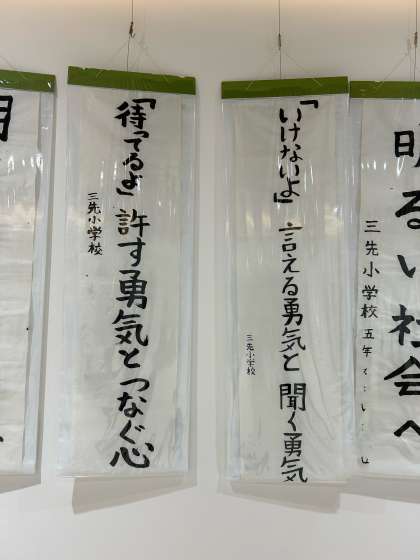 明るい社会へ
三先小学校 五年
「いけないよ」 言える勇気と 聞く勇気
三先小学校
「待ってるよ」 許す勇気と つなぐ心
三先小学校